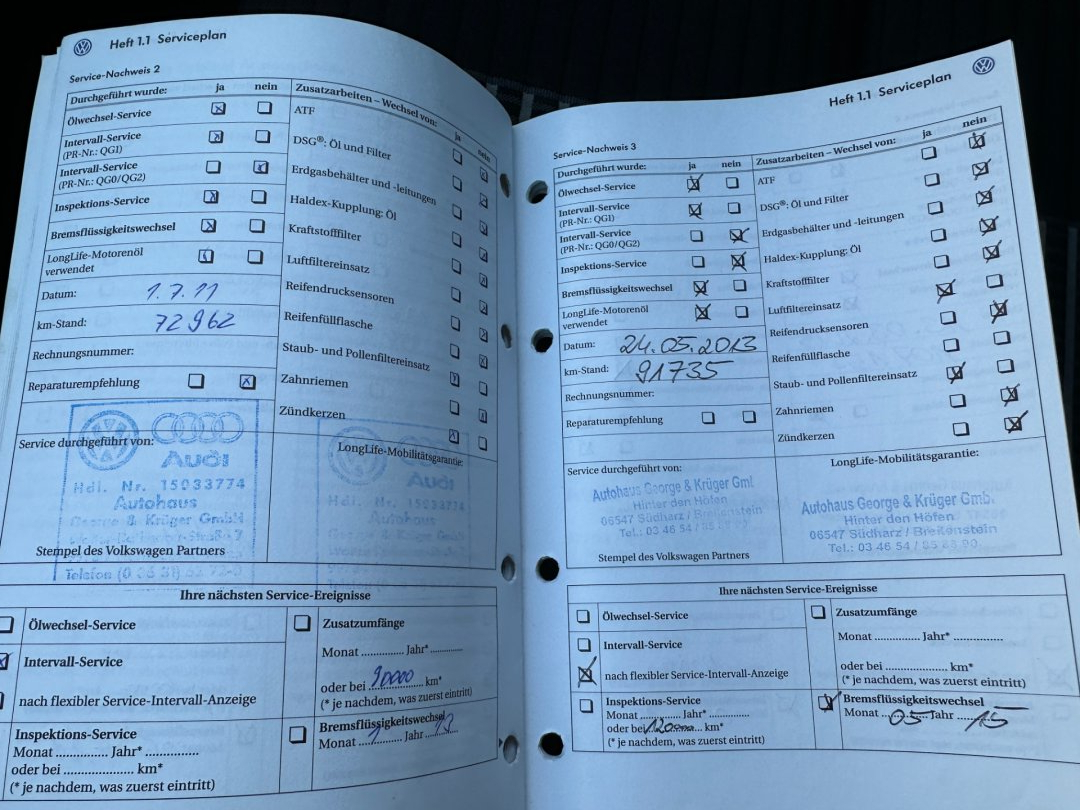 Heft 1.1 Serviceplan
Service-Nachweis 2
Durchgeführt wurde: ja nein
Ölwechsel-Service
Intervall-Service
(PR-Nr.: QG1)
Intervall-Service
(PR-Nr.: QG0/QG2)
Inspektions-Service
Bremsflüssigkeitswechsel
LongLife-Motorenöl
verwendet
Datum: 1.7.11
km-Stand: 72962
Rechnungsnummer:
Reparaturempfehlung
Zusatzarbeiten – Wechsel von: ja nein
ATF
DSG®: Öl und Filter
Erdgasbehälter und -leitungen
Haldex-Kupplung: Öl
Kraftstofffilter
Luftfiltereinsatz
Reifendrucksensoren
Reifenfüllflasche
Staub- und Pollenfiltereinsatz
Zahnriemen
Zündkerzen
Service durchgeführt von:
Audi
Hdl. Nr. 15033774
Autohaus
George & Krüger GmbH
Stempel des Volkswagen Partners
LongLife-Mobilitätsgarantie:
Audi
Hdl. Nr.
Autohaus
Ihre nächsten Service-Ereignisse
Ölwechsel-Service
Intervall-Service
nach flexibler Service-Intervall-Anzeige
Inspektions-Service
Monat .............. Jahr* ..............
oder bei .................... km*
(* je nachdem, was zuerst eintritt)
Zusatzumfänge
Monat ............ Jahr* ............
oder bei 90000 km*
(* je nachdem, was zuerst eintritt)
Bremsflüssigkeitswechsel
Monat 7 Jahr 13
Heft 1.1 Serviceplan
Service-Nachweis 3
Durchgeführt wurde: ja nein
Ölwechsel-Service
Intervall-Service
(PR-Nr.: QG1)
Intervall-Service
(PR-Nr.: QG0/QG2)
Inspektions-Service
Bremsflüssigkeitswechsel
LongLife-Motorenöl
verwendet
Datum: 24.05.2013
km-Stand: 91735
Rechnungsnummer:
Reparaturempfehlung
Zusatzarbeiten – Wechsel von: ja nein
ATF
DSG®: Öl und Filter
Erdgasbehälter und -leitungen
Haldex-Kupplung: Öl
Kraftstofffilter
Luftfiltereinsatz
Reifendrucksensoren
Reifenfüllflasche
Staub- und Pollenfiltereinsatz
Zahnriemen
Zündkerzen
Service durchgeführt von:
Autohaus George & Krüger Gml
Hinter den Höfen
06547 Südharz / Breitenstein
Tel.: 03 46 54 / 85 88 90
Stempel des Volkswagen Partners
LongLife-Mobilitätsgarantie:
Autohaus George & Krüger Gmb.
Hinter den Höfen
06547 Südharz / Breitenstein
Tel.: 03 46 54 / 85 88 90
Ihre nächsten Service-Ereignisse
Ölwechsel-Service
Intervall-Service
nach flexibler Service-Intervall-Anzeige
Inspektions-Service
Monat ............ Jahr* ............
oder bei 120000 km*
(* je nachdem, was zuerst eintritt)
Zusatzumfänge
Monat ............ Jahr* ............
oder bei .................. km*
(* je nachdem, was zuerst eintritt)
Bremsflüssigkeitswechsel
Monat 05 Jahr 15